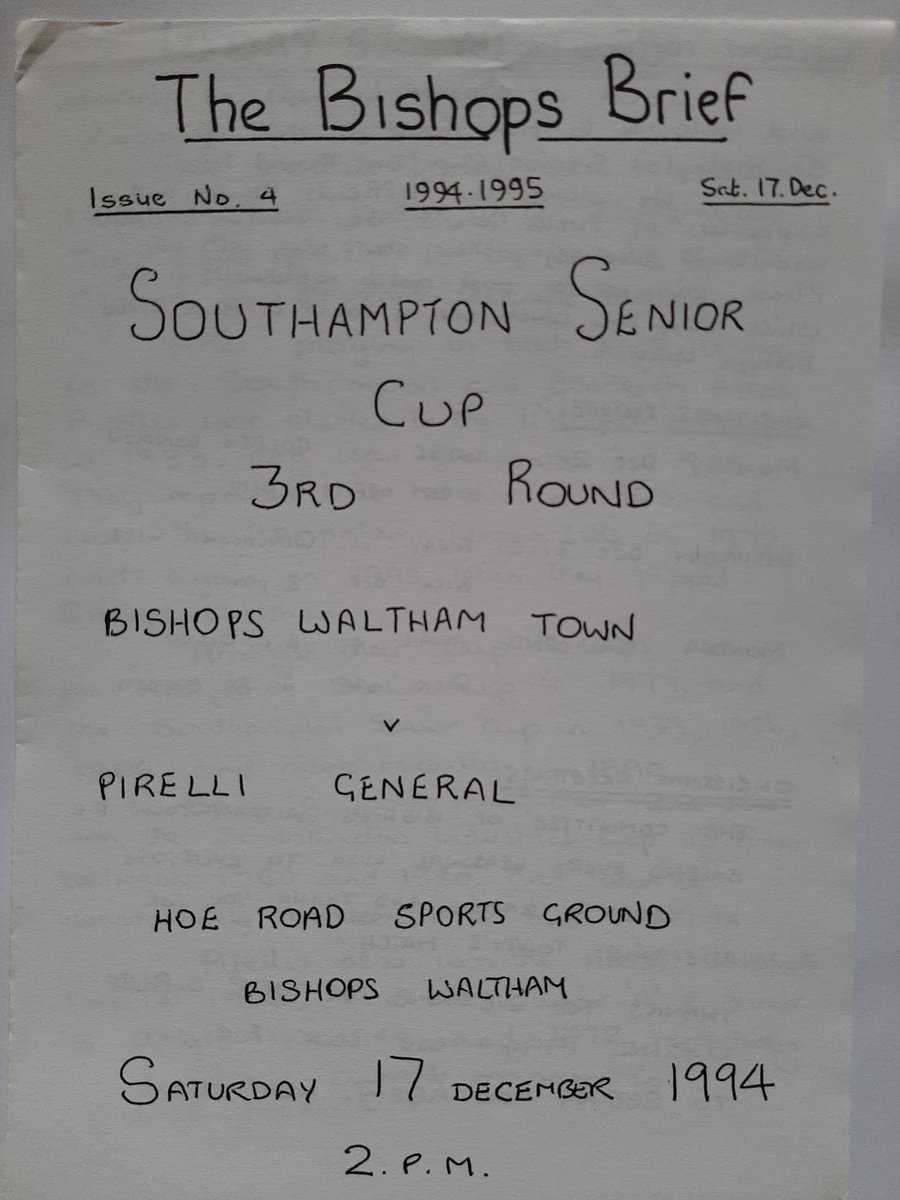 The Bishops Brief
Issue No. 4 1994.1995 Sat. 17. Dec.
SOUTHAMPTON SENIOR
CUP
3RD ROUND
BISHOPS WALTHAM TOWN
v
PIRELLI GENERAL
HOE ROAD SPORTS GROUND
BISHOPS WALTHAM
SATURDAY 17 DECEMBER 1994
2. P.M.